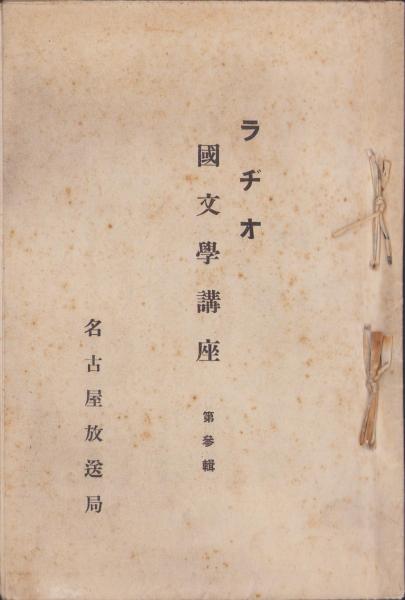 ラヂオ
國文學講座 第參輯
名古屋放送局